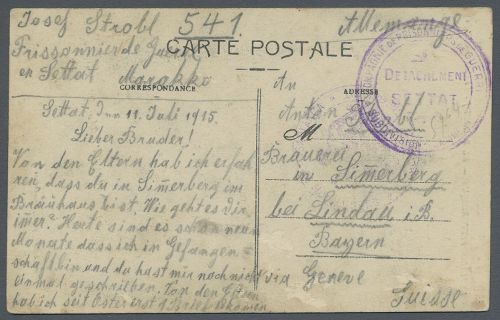 Josef Strobl
541.
Allemange.
Frissonnier de Guerre
en Settat Marokko
CARTE POSTALE
CORRESPONDANCE
ADRESSE
DETACHEMENT
SETTAT
Settat, den 11. Juli 1915.
Lieber Bruder!
Von den Eltern hab ich erfah
ren, dass du in Sim̅erberg im
Bräuhaus bist. Wie geht es dir
im̅er? Heute sind es schon neun
Monate dass ich in Gefangen-
schaft bin und du hast mir noch nicht
einmal geschrieben. Von den Eltern
hab ich seit Ostern erst 1 Brief bekommen.
An
Anton Strobl
M
Brauerei
in Sim̅erberg
bei Lindau i. B.
Bayern
via Geneve
Suisse